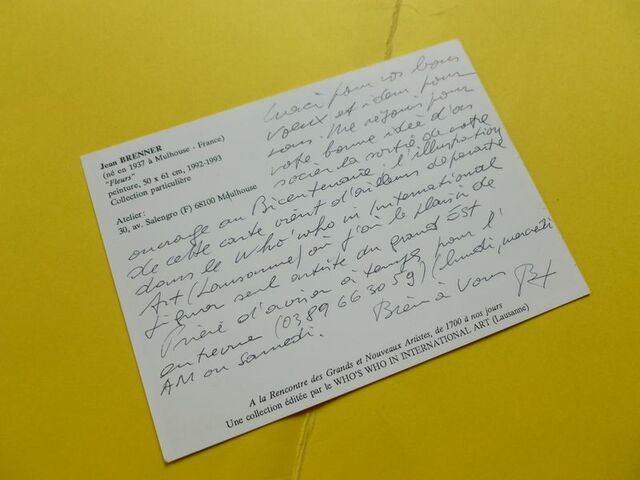 Jean BRENNER
(né en 1937 à Mulhouse - France)
"Fleurs"
peinture, 50 x 61 cm, 1992-1993
Collection particulière
Atelier:
30, av. Salengro (F) 68100 Mulhouse
Merci pour vos bons
vœux et idem pour
vous. Me réjouis pour
votre bonne idée d'as
socier la sortie de votre
ouvrage au Bicentenaire. L'illustration
de cette carte vient d'ailleurs de paraître
dans le Who' who in International
Art (Lausanne) où j'ai le plaisir de
figurer seul artiste du grand Est
Prière d'aviser à temps pour l'
entrevue (03 89 66 30 59) (lundi, mercredi
AM ou samedi.
Bien à vous
A la Rencontre des Grands et Nouveaux Artistes, de 1700 à nos jours
Une collection éditée par le WHO'S WHO IN INTERNATIONAL ART (Lausanne)